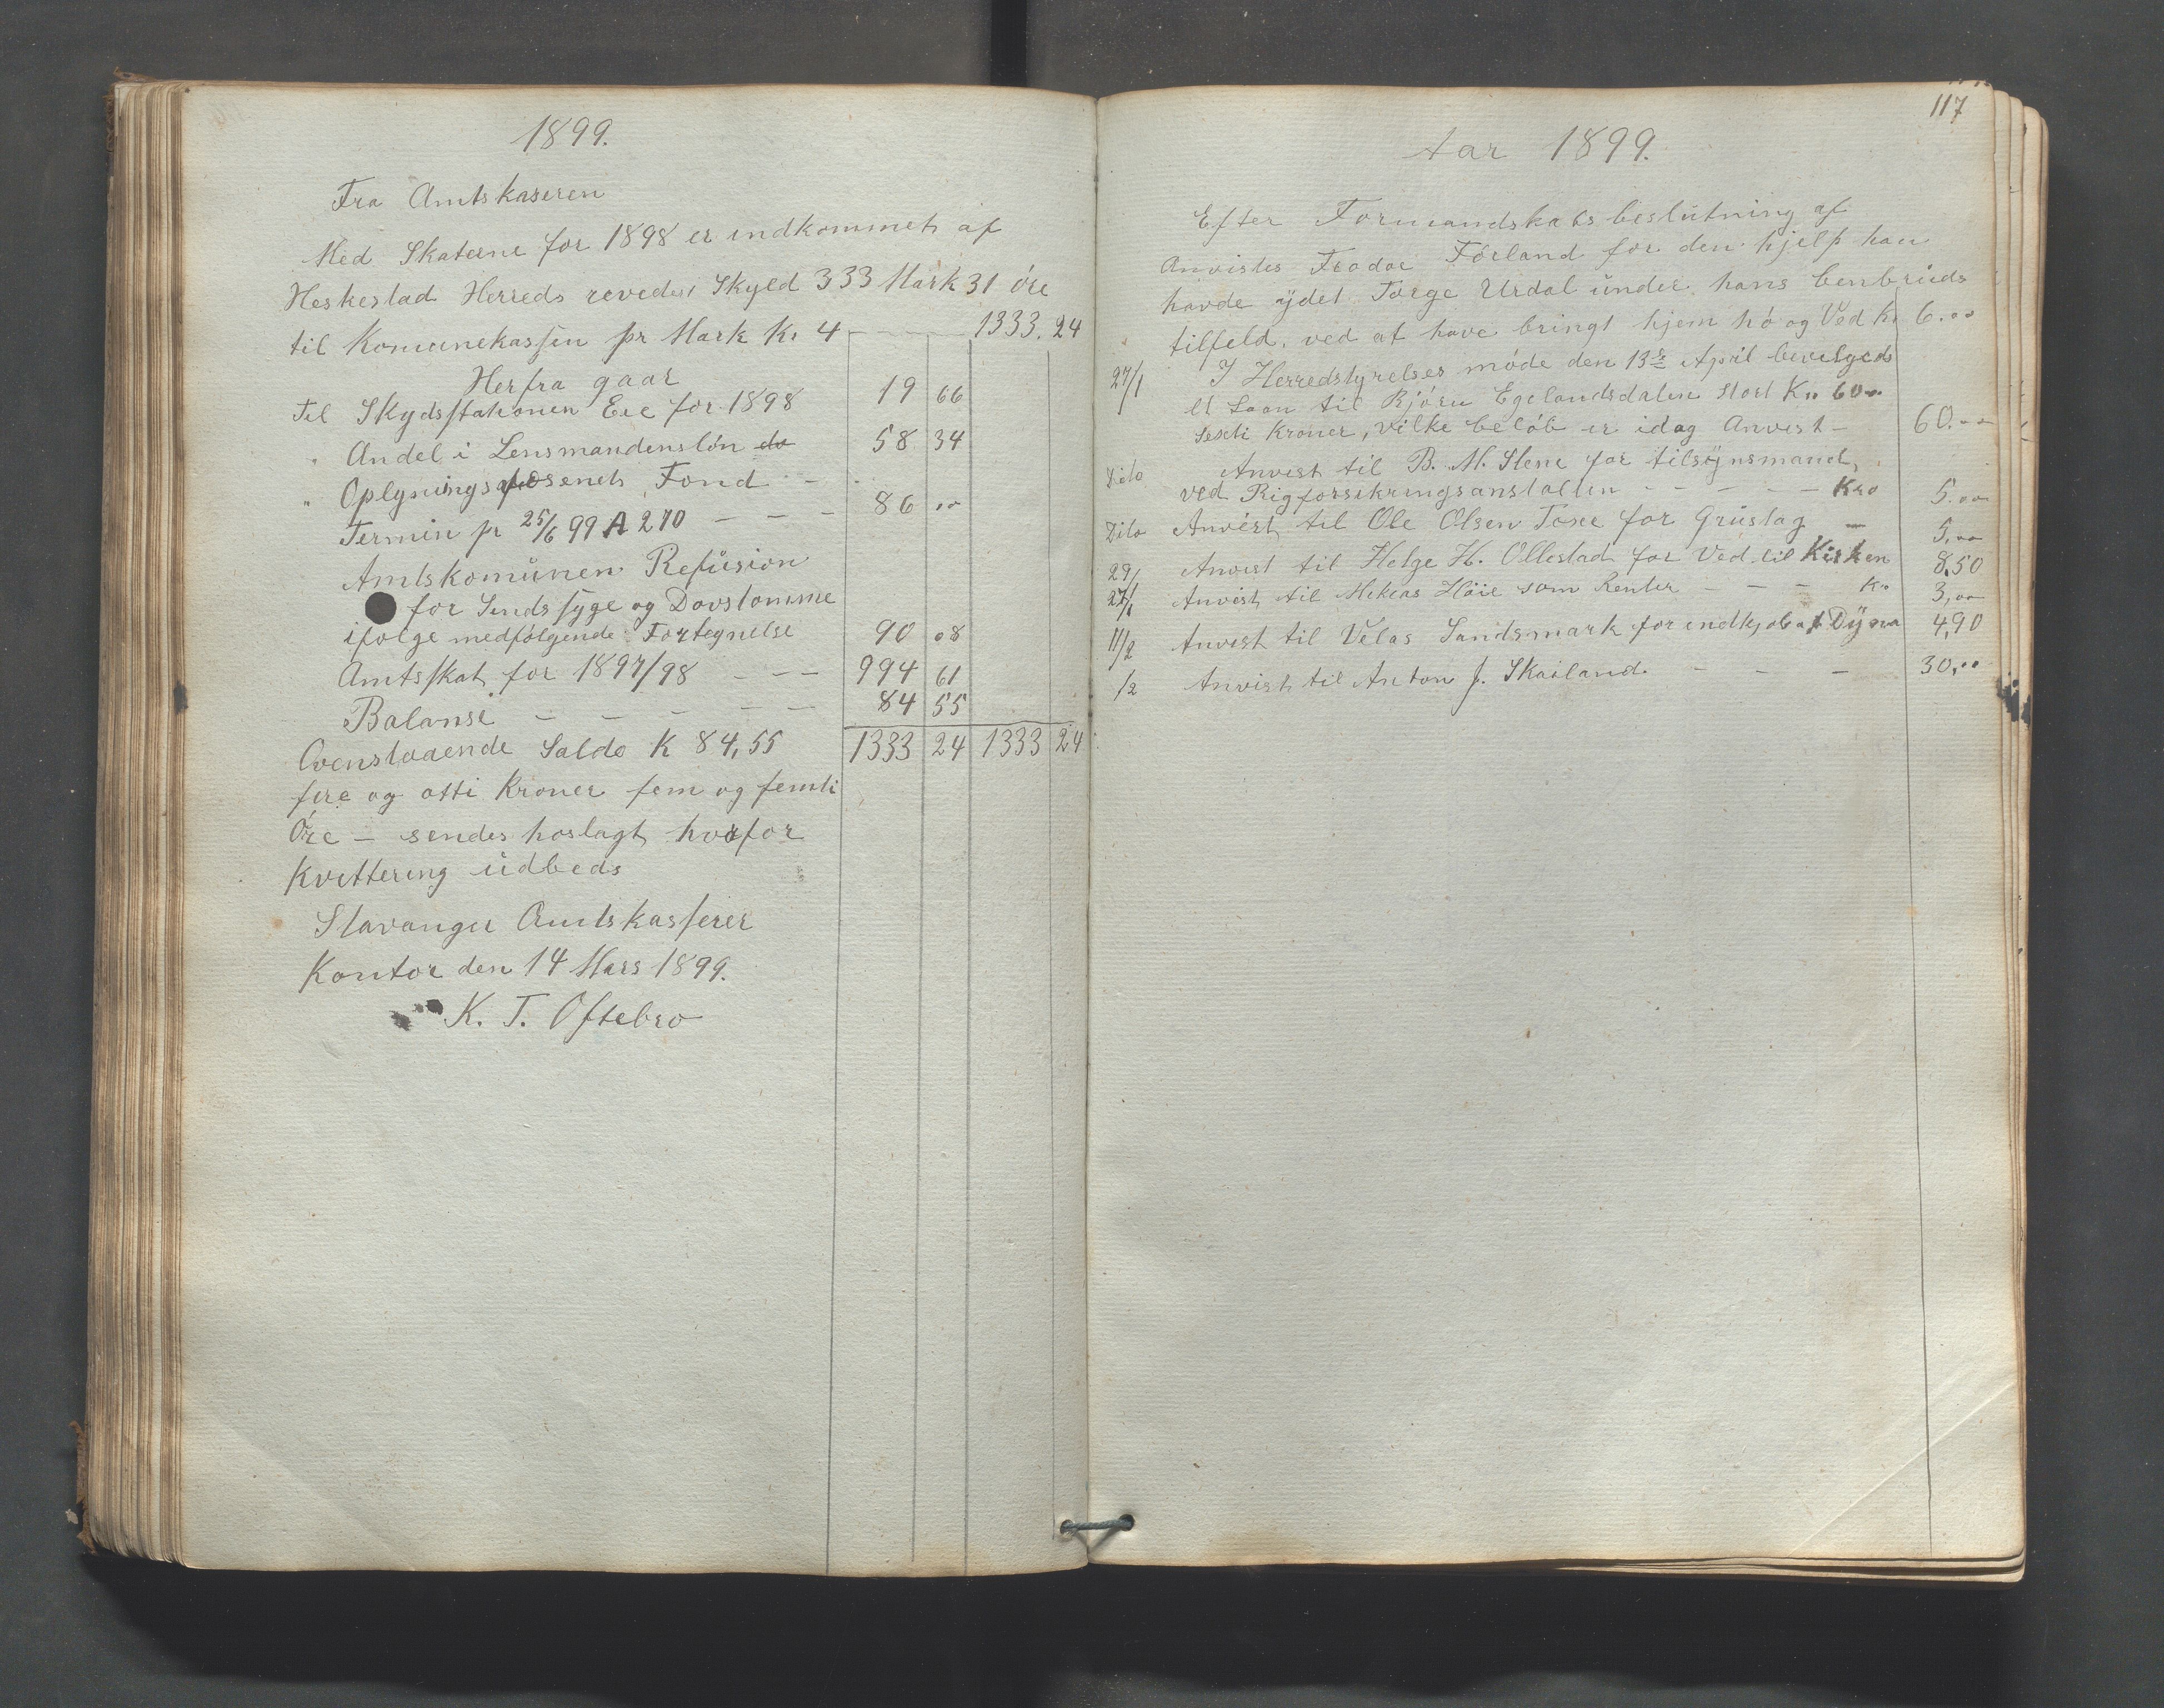 1899.
Fra Amtskaseren
Med Skaterne for 1898 er indkommet af
Heskestad Herreds revedert Skyld 333 Mark 31 Øre
til Komunekassen pr Mark Kr 4 — 1333.24
Herfra gaar
Til Skydsstationen Eie for 1898 19 66
" Andel i Lensmandensløn do 58 34
" Oplysningsvesenets Fond - -
Termin pr 25/6 99 A 270 - - - 86 00
Amtskomunen Refusion
for Sindssyge og Døvstomme
ifølge medfølgende Fortegnelse 90 08
Amtsskat for 1897/98 - - - 994 61
Balanse - - - - - 84 55
Ovenstaaende Saldo K 84,55 1333 24 1333 24
fire og otti Kroner fem og femti
Øre – sendes hoslagt hvorfor
Kvittering udbeds
Stavanger Amtskasserer
Kontor den 14 Mars 1899.
K. T. Oftebro
117
Aar 1899.
Efter Formandskabsbeslutning af
Anvistes Tradae Førland for den hjelp han
havde ydet Torge Urdal under hans benbruds
tilfeld, ved at have bringt hjem hø og Ved Kr 6.00
27/1 I Herredstyrelses møde den 13de April bevilgeds
et Laan til Bjørn Egelandsdalen Stort Kr. 60..
Sexti Kroner, vilke beløb er idag Anvist - 60.00
Dito Anvist til B. M. Slene for tilsøjnsmand
ved Rigforsikringsanstalten - - - - - Kro 5.00
Dito Anvist til Ole Olsen Toxe for Grustag — 5,00
29/ Anvist til Helge H. Ollestad for Ved til Kirken 8,50
27/1 Anvist til Mekias Høie som Renter - - - Kr. 3,00
11/2 Anvist til Velas Sandsmark for indkjøb af Dyna 4,90
/2 Anvist til Anton J. Skailand - - - 30,00